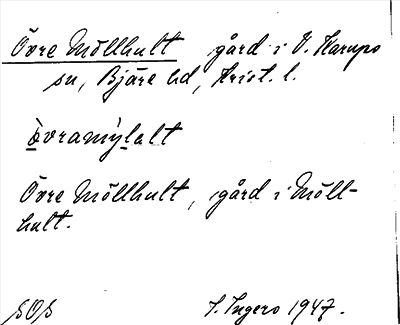 Övre Möllhult gård i V. Karups
sn, Bjäre hd, Krist. l.
òvramỳlalt
Övre Möllhult, gård i Möll-
hult.
SOS I. Ingers 1947.